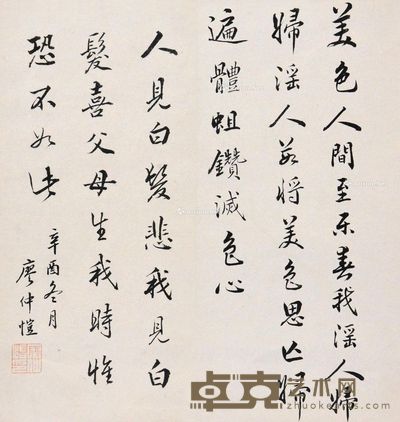 美色人間至乐春我淫人婦
婦淫人若将美色思亡婦
遍體蛆鑽滅色心
人見白髮悲我見白
髮喜父母生我時惟
恐不如此
辛酉冬月
廖仲愷
卓克艺术网
zhuokearts.com